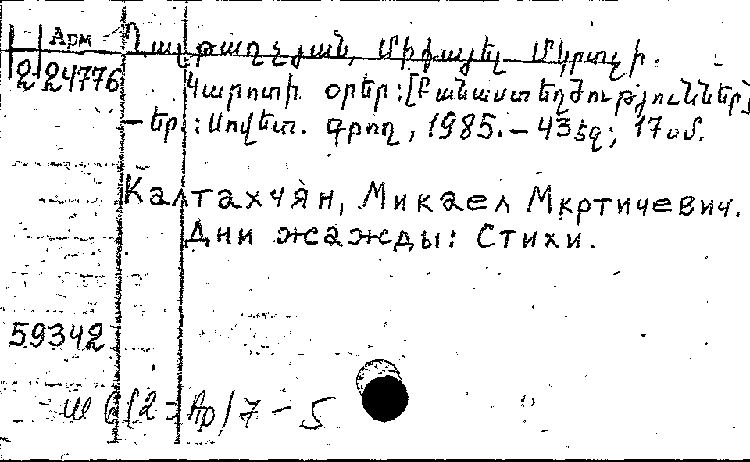 Арм Ղալթաղչյան, Միքայել Մկրտչի.
2 24776 Կարոտի օրեր: [Բանաստեղծություններ]
— Եր.: Սովետ. գրող, 1985. — 43 էջ; 17 սմ.
Калтахчян, Микаел Мкртичевич.
Дни жажды: Стихи.
59342
Ш 6(2=Ар)7 — 5